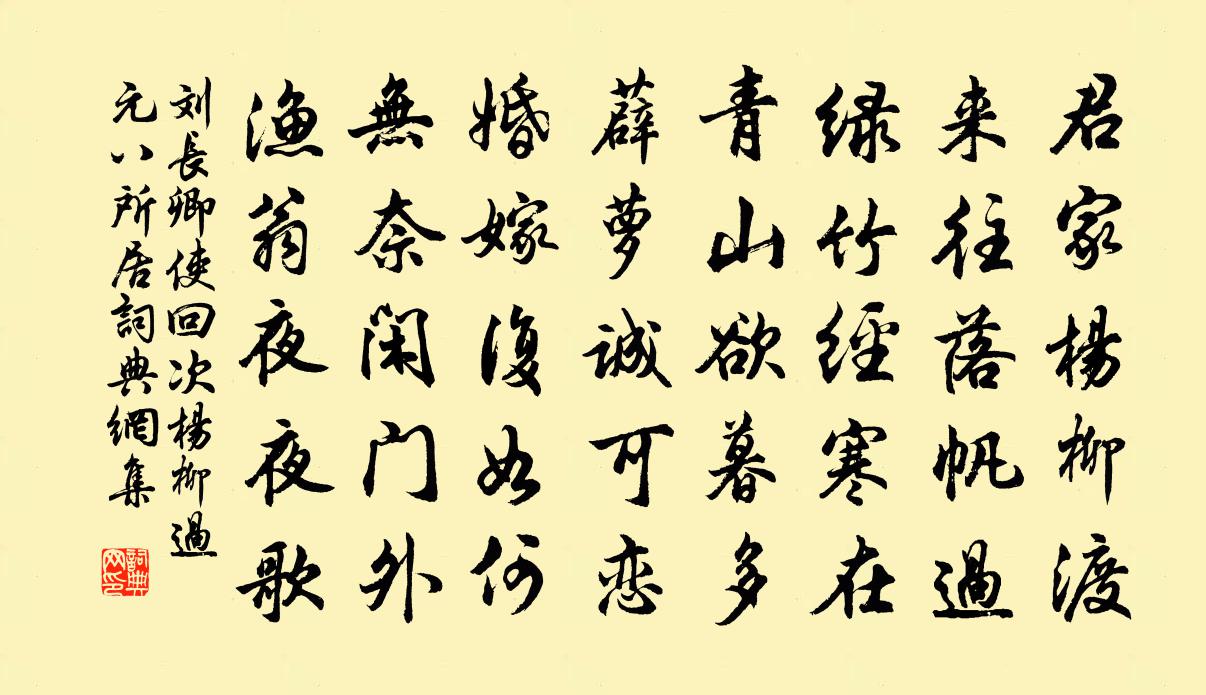 君家楊柳渡
来往落帆過
绿竹經寒在
青山欲暮多
薜萝誠可恋
婚嫁復如何
無奈閑门外
渔翁夜夜歌
刘長卿使回次楊柳過
元八所居詞典網集
詞典网印